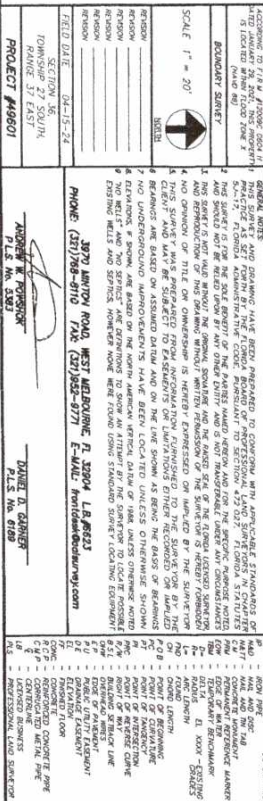 ACCORDING TO F.I.R.M. #12009C 0604 H
DATED JANUARY 29, 2021, THIS PROPERTY
IS LOCATED WITHIN FLOOD ZONE X
(NAVD 88)
BOUNDARY SURVEY
SCALE 1" = 20'
NORTH
REVISION
REVISION
REVISION
REVISION
FIELD DATE 04-15-24
SECTION 36,
TOWNSHIP 27 SOUTH,
RANGE 37 EAST
PROJECT #49601
GENERAL NOTES:
1 THIS SURVEY AND DRAWING HAVE BEEN PREPARED TO CONFORM WITH APPLICABLE STANDARDS OF
PRACTICE AS SET FORTH BY THE FLORIDA BOARD OF PROFESSIONAL LAND SURVEYORS IN CHAPTER
5J-17, FLORIDA ADMINISTRATIVE CODE, PURSUANT TO SECTION 472.027, FLORIDA STATUTES
2 THIS SURVEY IS FOR THE SOLE BENEFIT OF THE PARTIES NAMED HEREON AND THE SPECIFIC PURPOSE NOTED
AND SHOULD NOT BE RELIED UPON BY ANY OTHER ENTITY AND IS NOT TRANSFERABLE UNDER ANY CIRCUMSTANCES
3. THIS SURVEY IS NOT VALID WITHOUT THE ORIGINAL SIGNATURE AND THE RAISED SEAL OF THE FLORIDA LICENSED SURVEYOR
AND REPRODUCTION OF THE DRAWING WITHOUT WRITTEN PERMISSION OF THE SURVEYOR IS HEREBY FORBIDDEN
4. NO OPINION OF TITLE OR OWNERSHIP IS HEREBY EXPRESSED OR IMPLIED BY THE SURVEYOR
5. THIS SURVEY WAS PREPARED FROM INFORMATION FURNISHED TO THE SURVEYOR BY THE
CLIENT AND MAY BE SUBJECT TO EASEMENTS OR LIMITATIONS EITHER RECORDED OR IMPLIED
6 BEARINGS ARE BASED ON ASSUMED DATUM AND ON THE LINE SHOWN AS BEING THE BASIS OF BEARINGS
7 NO UNDERGROUND IMPROVEMENTS HAVE BEEN LOCATED UNLESS OTHERWISE SHOWN
8. ELEVATIONS, IF SHOWN, ARE BASED ON THE NORTH AMERICAN VERTICAL DATUM OF 1988, UNLESS OTHERWISE NOTED
9 "NO WELLS" AND "NO SEPTICS" ARE DEFINITIONS TO SHOW AN ATTEMPT BY THE SURVEYOR TO LOCATE POSSIBLE
EXISTING WELLS AND SEPTICS, HOWEVER NONE WERE FOUND USING STANDARD SURVEY LOCATING EQUIPMENT
3970 MINTON ROAD, WEST MELBOURNE, FL 32904 LB #6623
PHONE: (321)768-8110 FAX: (321)952-9771
ANDREW W. POWSHOK
P.L.S. No. 5383
DANIEL D. GARNER
P.L.S. No. 6189
IRON PIPE
NAIL AND DISC
NAIL AND TIN TAB
CONCRETE MONUMENT
PERMANENT REFERENCE MARKER
EDGE OF WATER
DELTA EL XXXX - EXISTING
ARC LENGTH GRADES
FOUND
CHORD LENGTH
P O B POINT OF BEGINNING
PC POINT OF CURVATURE
PT POINT OF TANGENCY
PI POINT OF INTERSECTION
PRC POINT OF REVERSE CURVE
R/W RIGHT OF WAY
B S L BUILDING SETBACK LINE
OHW OVERHEAD WIRES
EDGE OF PAVEMENT
PUBLIC UTILITY EASEMENT
D E DRAINAGE EASEMENT
EL ELEVATION
FF FINISHED FLOOR
CONC CONCRETE
R C P REINFORCED CONCRETE PIPE
C M P CORRUGATED METAL PIPE
CENTERLINE
LB LICENSED BUSINESS
PLS PROFESSIONAL LAND SURVEYOR